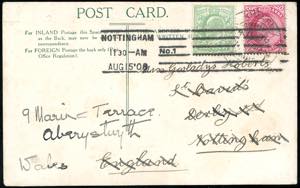 POST CARD.
For INLAND Postage this
as the Back, may now be
correspondence.
For FOREIGN Postage the back only
Office Regulation).
NOTTINGHAM
11 30 AM
AUG 15 08
No. 1
Miss Gwladys Roberts
St Davids
Derby Rd
Nottingham
England
9 Marine Terrace
Aberystwyth
Wales